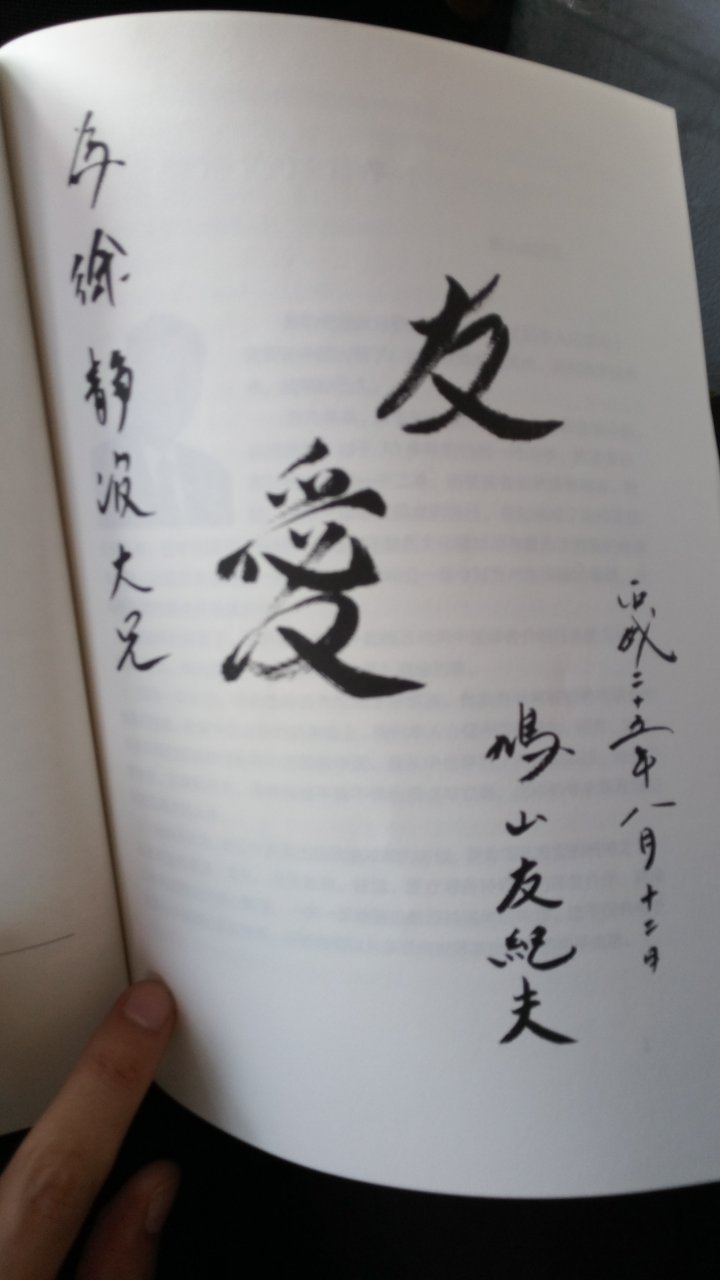 平成二十五年八月十二日
鳩山友紀夫
友愛
為徐静波大兄